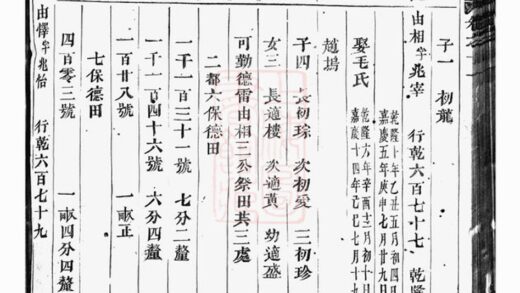 子一 初龍
由相 字兆宰 行乾六百七十七 乾隆
乾隆十年乙丑五月初四日
嘉慶五年庚申七月廿九日
娶毛氏
乾隆六年辛酉十二月初十日
嘉慶十四年己巳七月十
趙塢
子四 長初琮 次初愛 三初珍
女三 長適樓 次適黃 幼適盛
可勤德雷由相三公祭田共三處
二都六保德田
一千一百三十一號 七分二釐
一千一百四十六號 六分四釐
一百廿八號 一畝正
七保德田
四百零三號 一畝四分四釐
由懌 字兆怡 行乾六百七十九